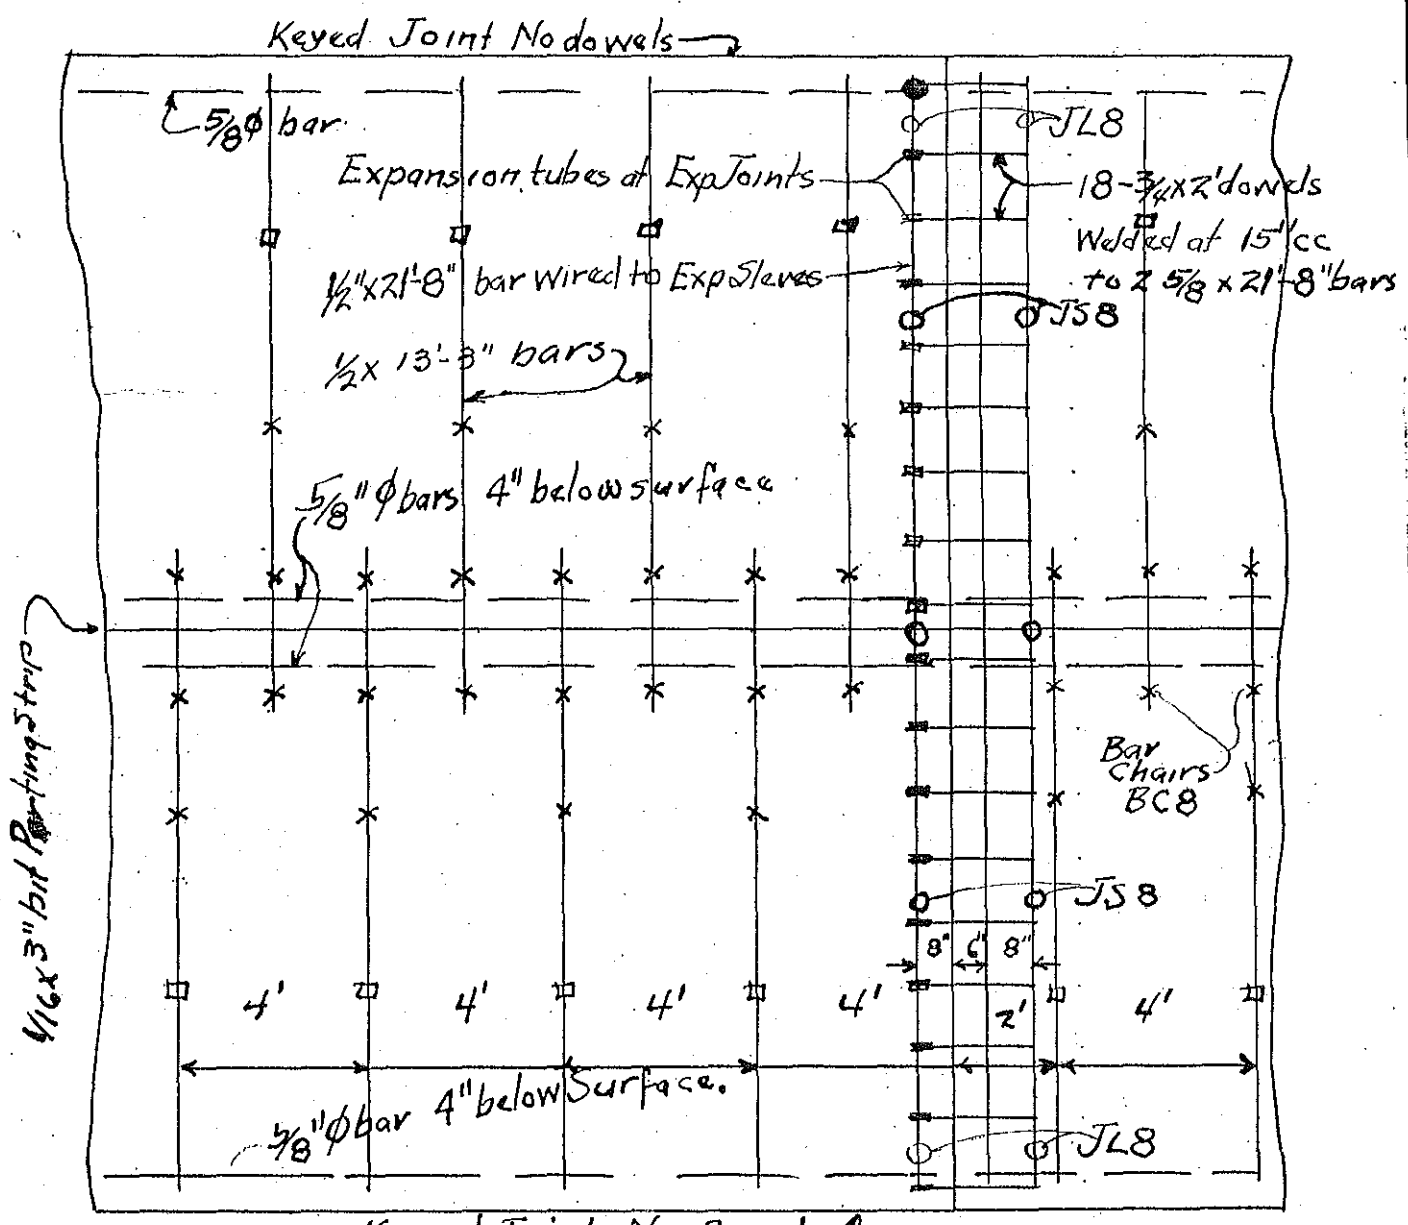 Keyed Joint No dowels
5/8 ϕ bar
JL8
Expansion tubes at Exp Joints
18-3/4 x 2' dowels
Welded at 15" cc
to 2 5/8 x 21'-8" bars
1/2" x 21'-8" bar wired to Exp Sleves
JS8
1/2 x 13'-3" bars
5/8" ϕ bars 4" below surface
1/16 x 3" bit Parting Strip
Bar
Chairs
BC8
JS8
8" 6" 8"
4' 4' 4' 4' 2' 4'
5/8" ϕ bar 4" below Surface.
JL8
Keyed Joint No